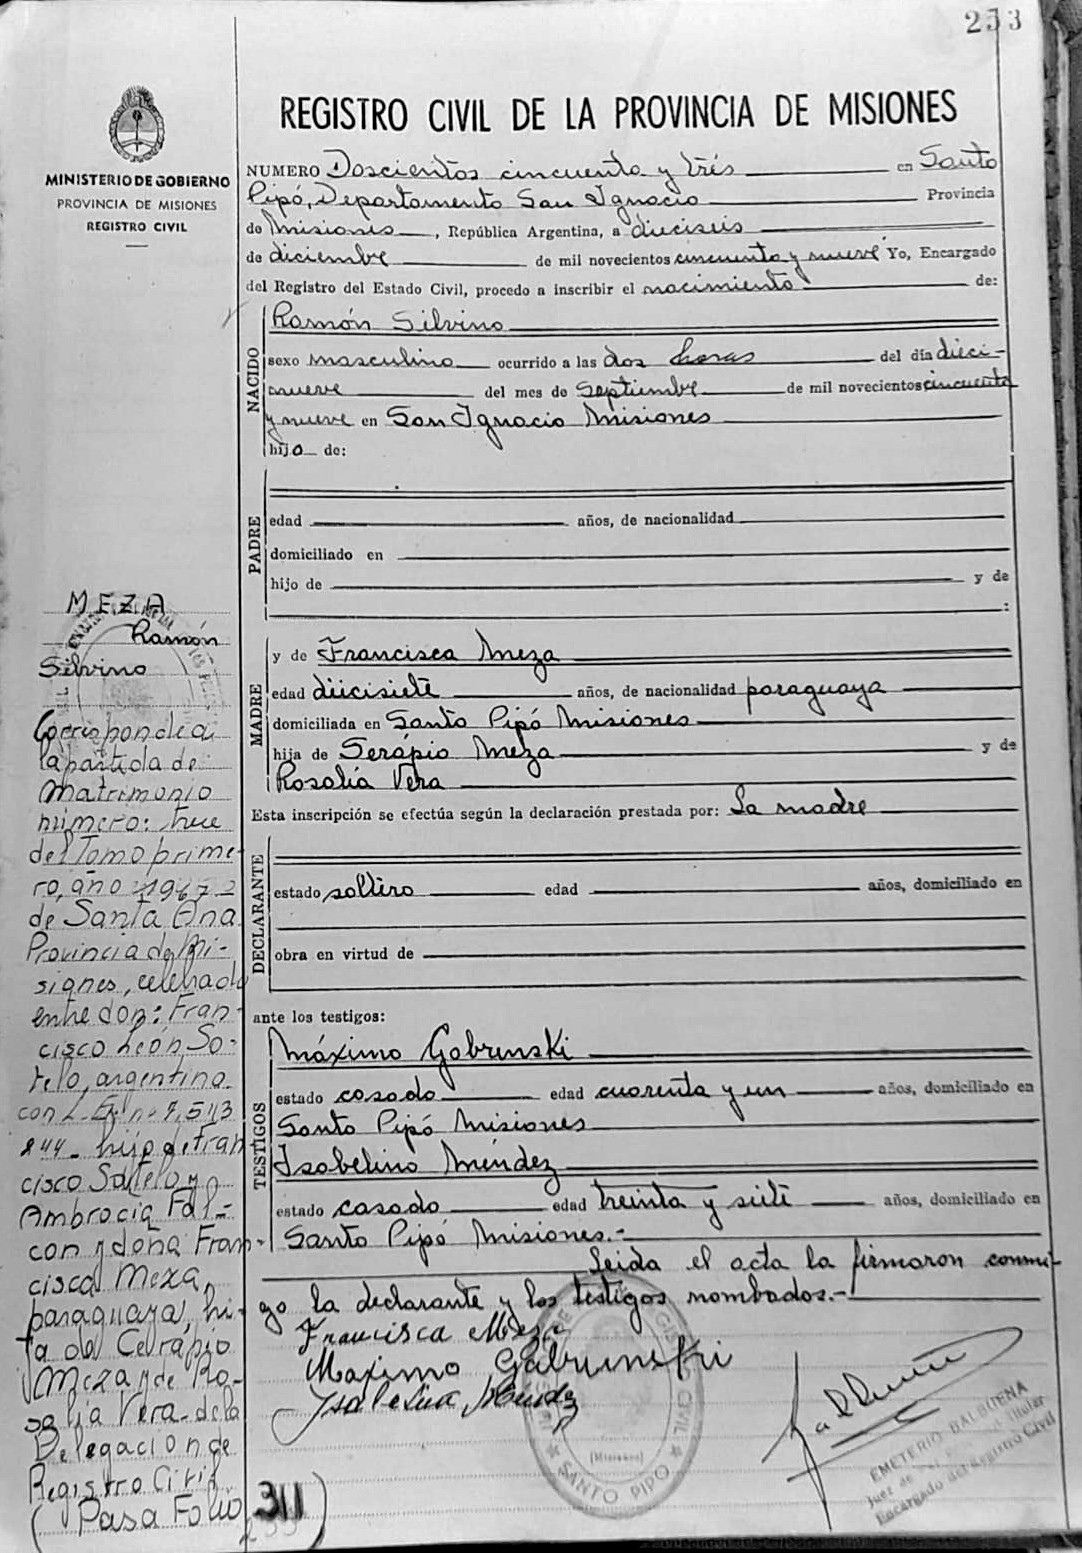 253
REGISTRO CIVIL DE LA PROVINCIA DE MISIONES
MINISTERIO DE GOBIERNO
PROVINCIA DE MISIONES
REGISTRO CIVIL
NUMERO Doscientos cincuenta y trés en Santo
Pipó, Departamento San Ignacio Provincia
de Misiones, República Argentina, a dieciseis
de diciembre de mil novecientos cincuenta y nueve Yo, Encargado
del Registro del Estado Civil, procedo a inscribir el nacimiento de:
NACIDO
Ramón Silvino
sexo masculino ocurrido a las dos horas del día dieci-
nueve del mes de Septiembre de mil novecientos cincuenta
y nueve en San Ignacio Misiones
hijo de:
PADRE
edad años, de nacionalidad
domiciliado en
hijo de y de
:
MADRE
y de Francisca Meza
edad diecisiete años, de nacionalidad paraguaya
domiciliada en Santo Pipó Misiones
hija de Serapio Meza y de
Rosalía Vera
Esta inscripción se efectúa según la declaración prestada por: La madre
DECLARANTE
estado soltero edad años, domiciliado en
obra en virtud de
ante los testigos:
TESTIGOS
Máximo Gabrunski
estado casado edad cuarenta y un años, domiciliado en
Santo Pipó Misiones
Isabelino Méndez
estado casado edad treinta y siete años, domiciliado en
Santo Pipó Misiones.-
Leida el acta la firmaron conmi-
go la declarante y los testigos nombados.-
Francisca Meza
Maximo Gabrunski
MEZA
Ramón
Silvino
Corresponde a
la partida de
Matrimonio
número: trece
del Tomo prime-
ro, año 1967
de Santa Ana
Provincia de Mi-
siones, celebrado
entre don: Fran-
cisco León So-
telo, argentino
con L.E. nº 7,543
844 - hijo de Fran
cisco Sotelo y
Ambrocia Fal-
con y doña Fran-
cisca Meza,
paraguaya, hi-
ja de Cerapio
Meza y de Ro-
salia Vera - de la
Delegacion de
Registro Civil
(Pasa Folio 311)
REGISTRO CIVIL
(Misiones)
SANTO PIPO
EMETERIO BALBUENA
Juez de Paz Titular
Encargado del Registro Civil